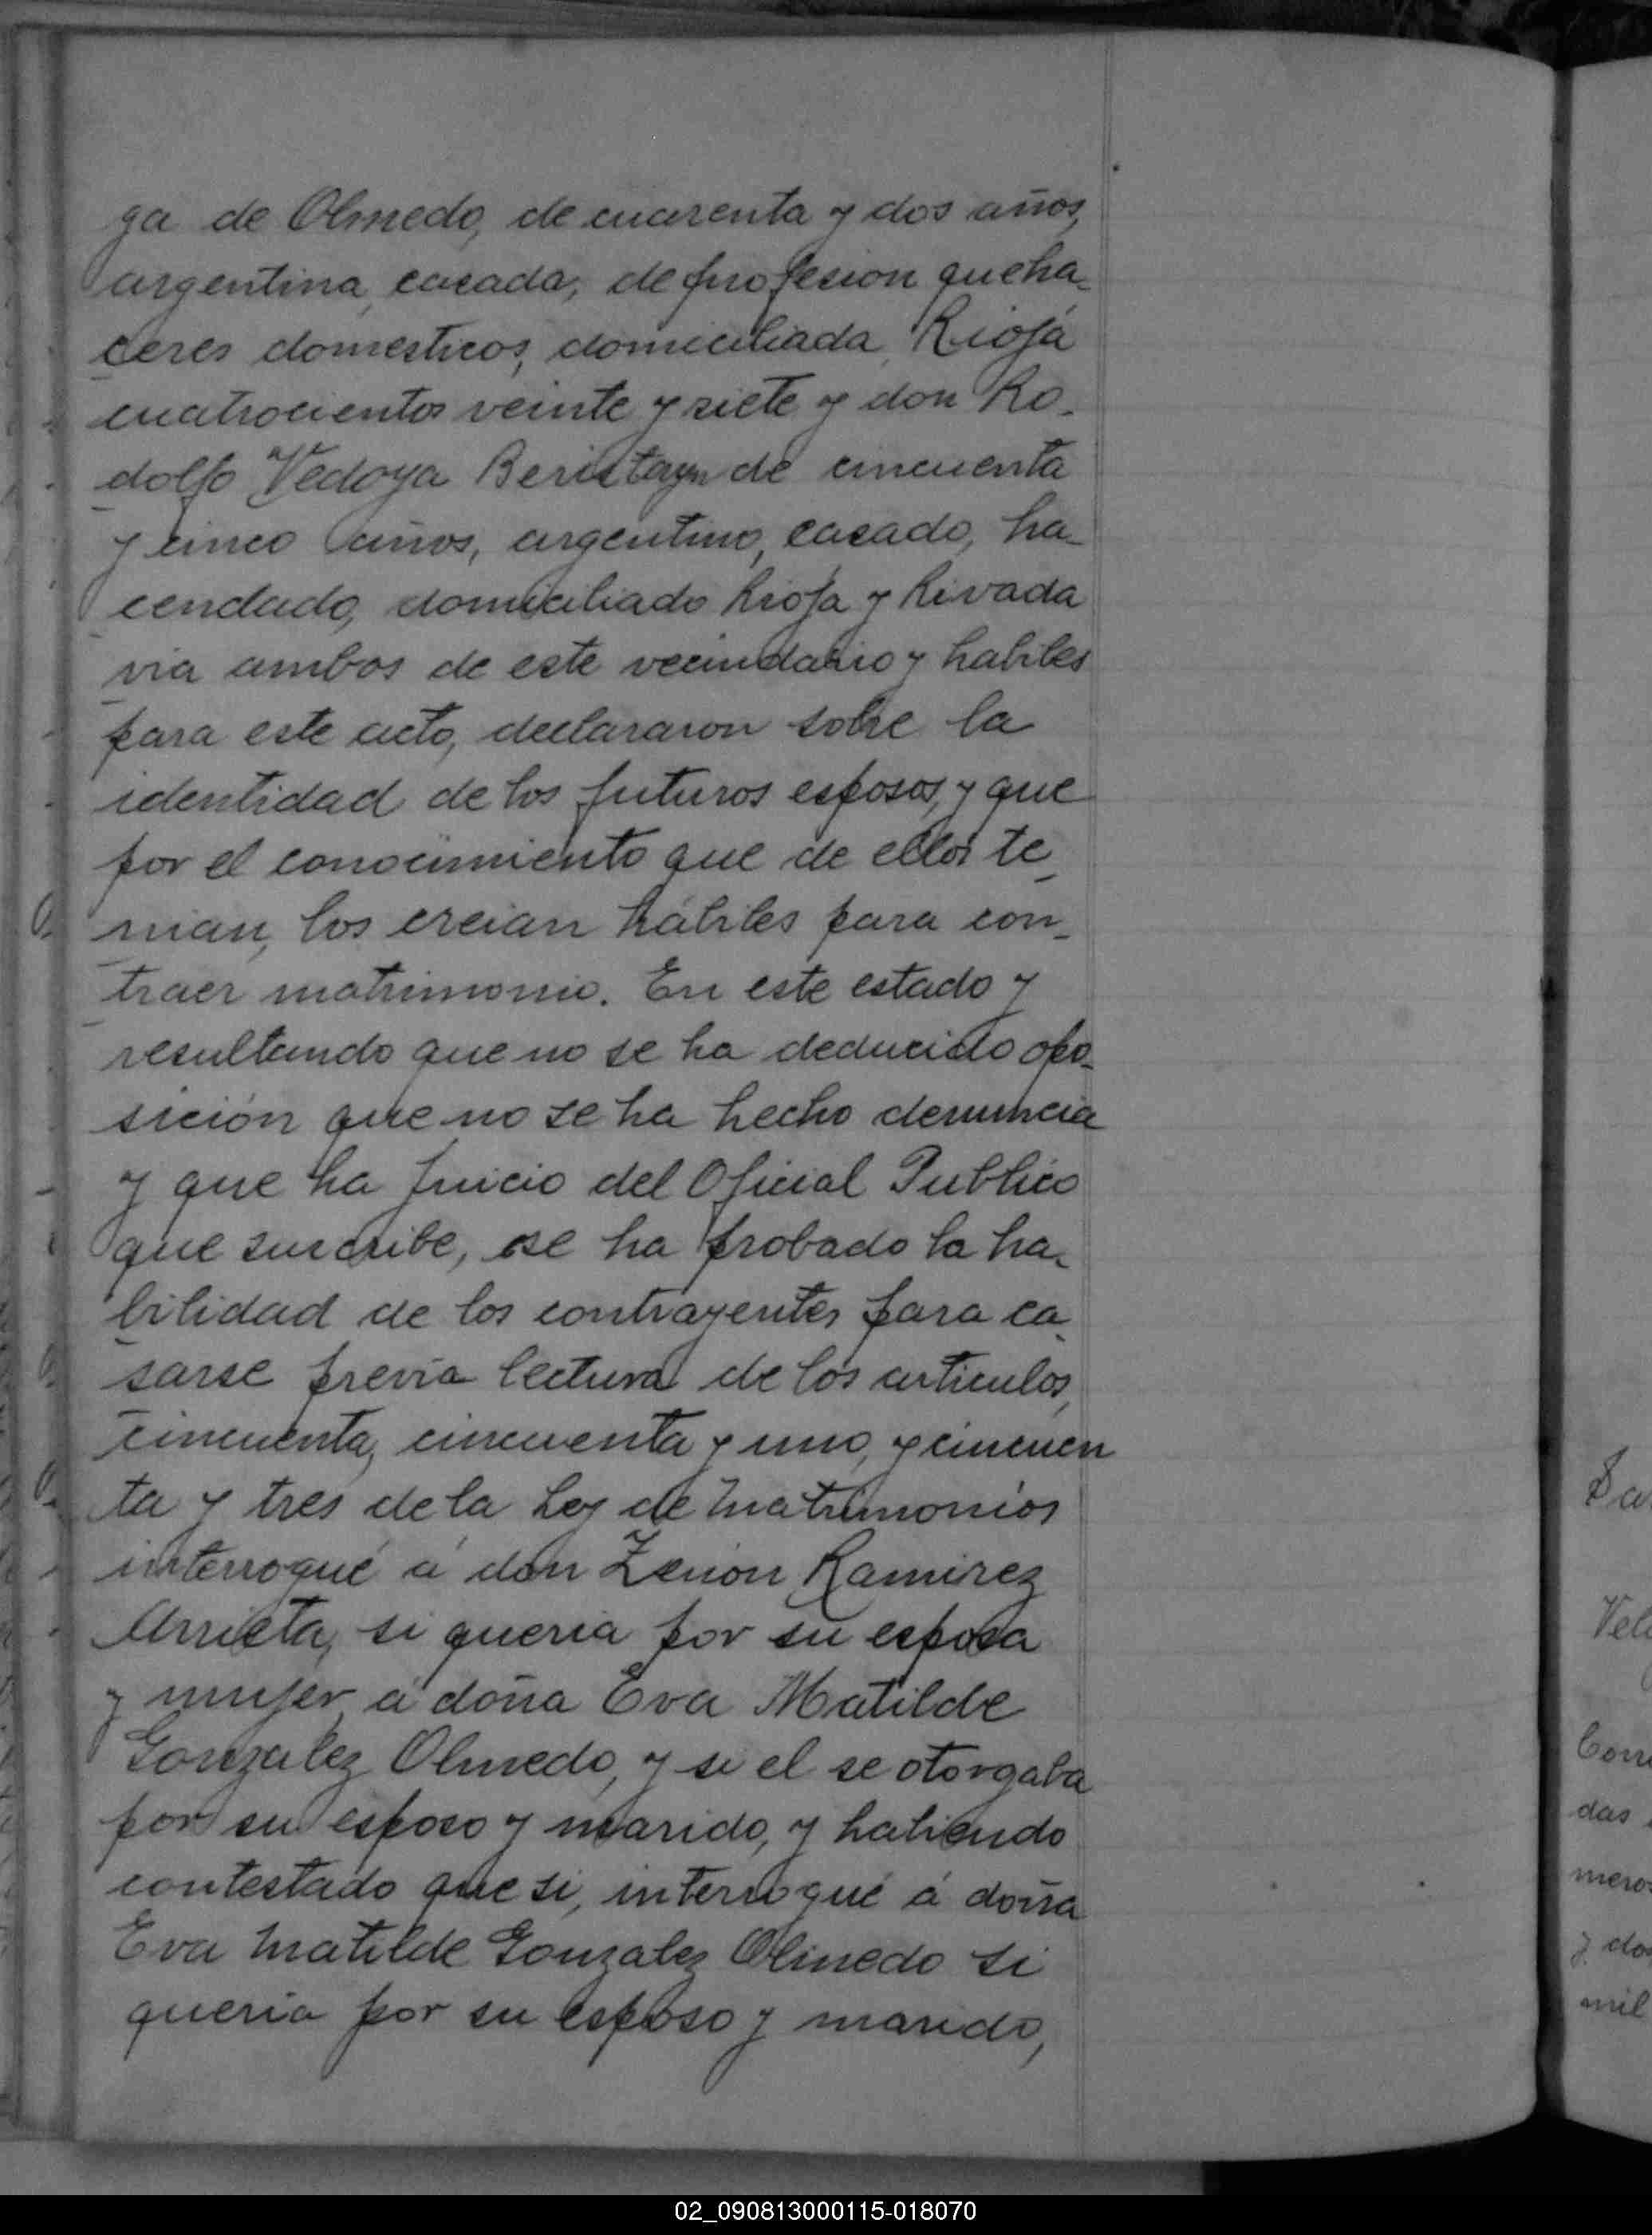 ga de Olmedo, de cuarenta y dos años,
argentina, casada, de profesion queha-
ceres domesticos, domiciliada, Rioja
cuatrocientos veinte y siete y don Ro-
dolfo Vedoya Beristayn de cincuenta
y cinco años, argentino, casado, ha-
cendado, domiciliado Rioja y Rivada
via ambos de este vecindario y habiles
para este acto, declararon sobre la
identidad de los futuros esposos, y que
por el conocimiento que de ellos te-
nian, los creian hábiles para con-
traer matrimonio. En este estado y
resultando que no se ha deducido opo-
sición que no se ha hecho denuncia
y que ha juicio del Oficial Publico
que suscribe, se ha probado la ha-
bilidad de los contrayentes para ca-
sarse previa lectura de los articulos,
cincuenta, cincuenta y uno, y cincuen
ta y tres de la Ley de Matrimonios
interrogué á don Zenón Ramirez
Arrieta, si queria por su esposa
y mujer á doña Eva Matilde
Gonzalez Olmedo, y si el se otorgaba
por su esposo y marido, y habiendo
contestado que si, interrogué á doña
Eva Matilde Gonzalez Olmedo si
queria por su esposo y marido,
das
y dos
mil
02_090813000115-018070